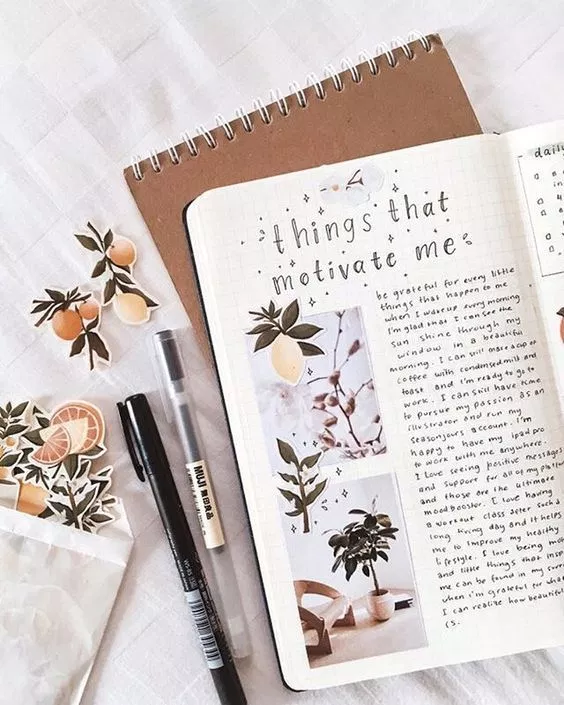 things that
motivate me
be grateful for every little
things that happen to me
when I wakeup every morning
I'm glad that I can see the
sun shine through my
window in a beautiful
morning. I can still make a cup of
coffee with condensed milk and
toast and I'm ready to go to
work. I can still have time
to pursue my passion as an
illustrator and run my
seasonjours account. I'm
happy to have my ipad pro
to work with me anywhere.
I love seeing positive messages
and support for all of my
and those are the ultimate
mood booster. I love having
a workout class after such a
long tiring day and it helps
me to improve my healthy
lifestyle. I love being
and little things that
me can be found in my
when i'm grateful for what
I can realize how beautiful
is.
daily
MUJI 無印良品